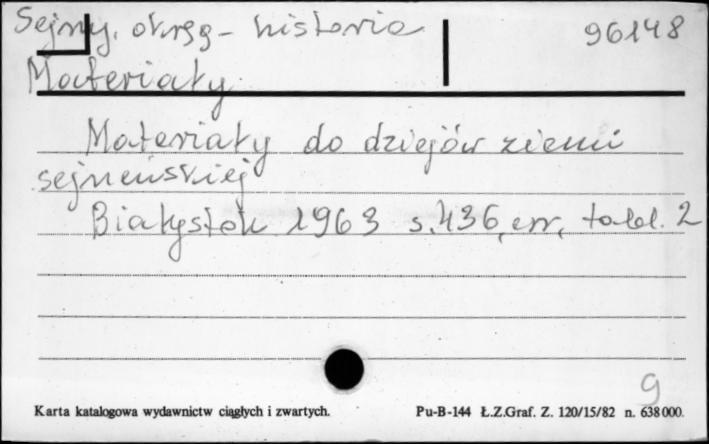 Sejny, okręg - historia 96148
Materiały
Materiały do dziejów ziemi
sejneńskiej
Białystok 1963 s. 436, err, tabl. 2
9
Karta katalogowa wydawnictw ciągłych i zwartych. Pu-B-144 Ł.Z.Graf. Z. 120/15/82 n. 638 000.